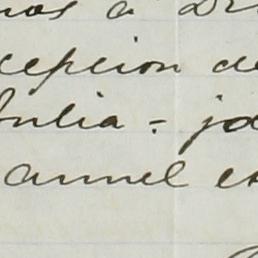 nos á Dr
cepcion de
Julia = jo
anuel es